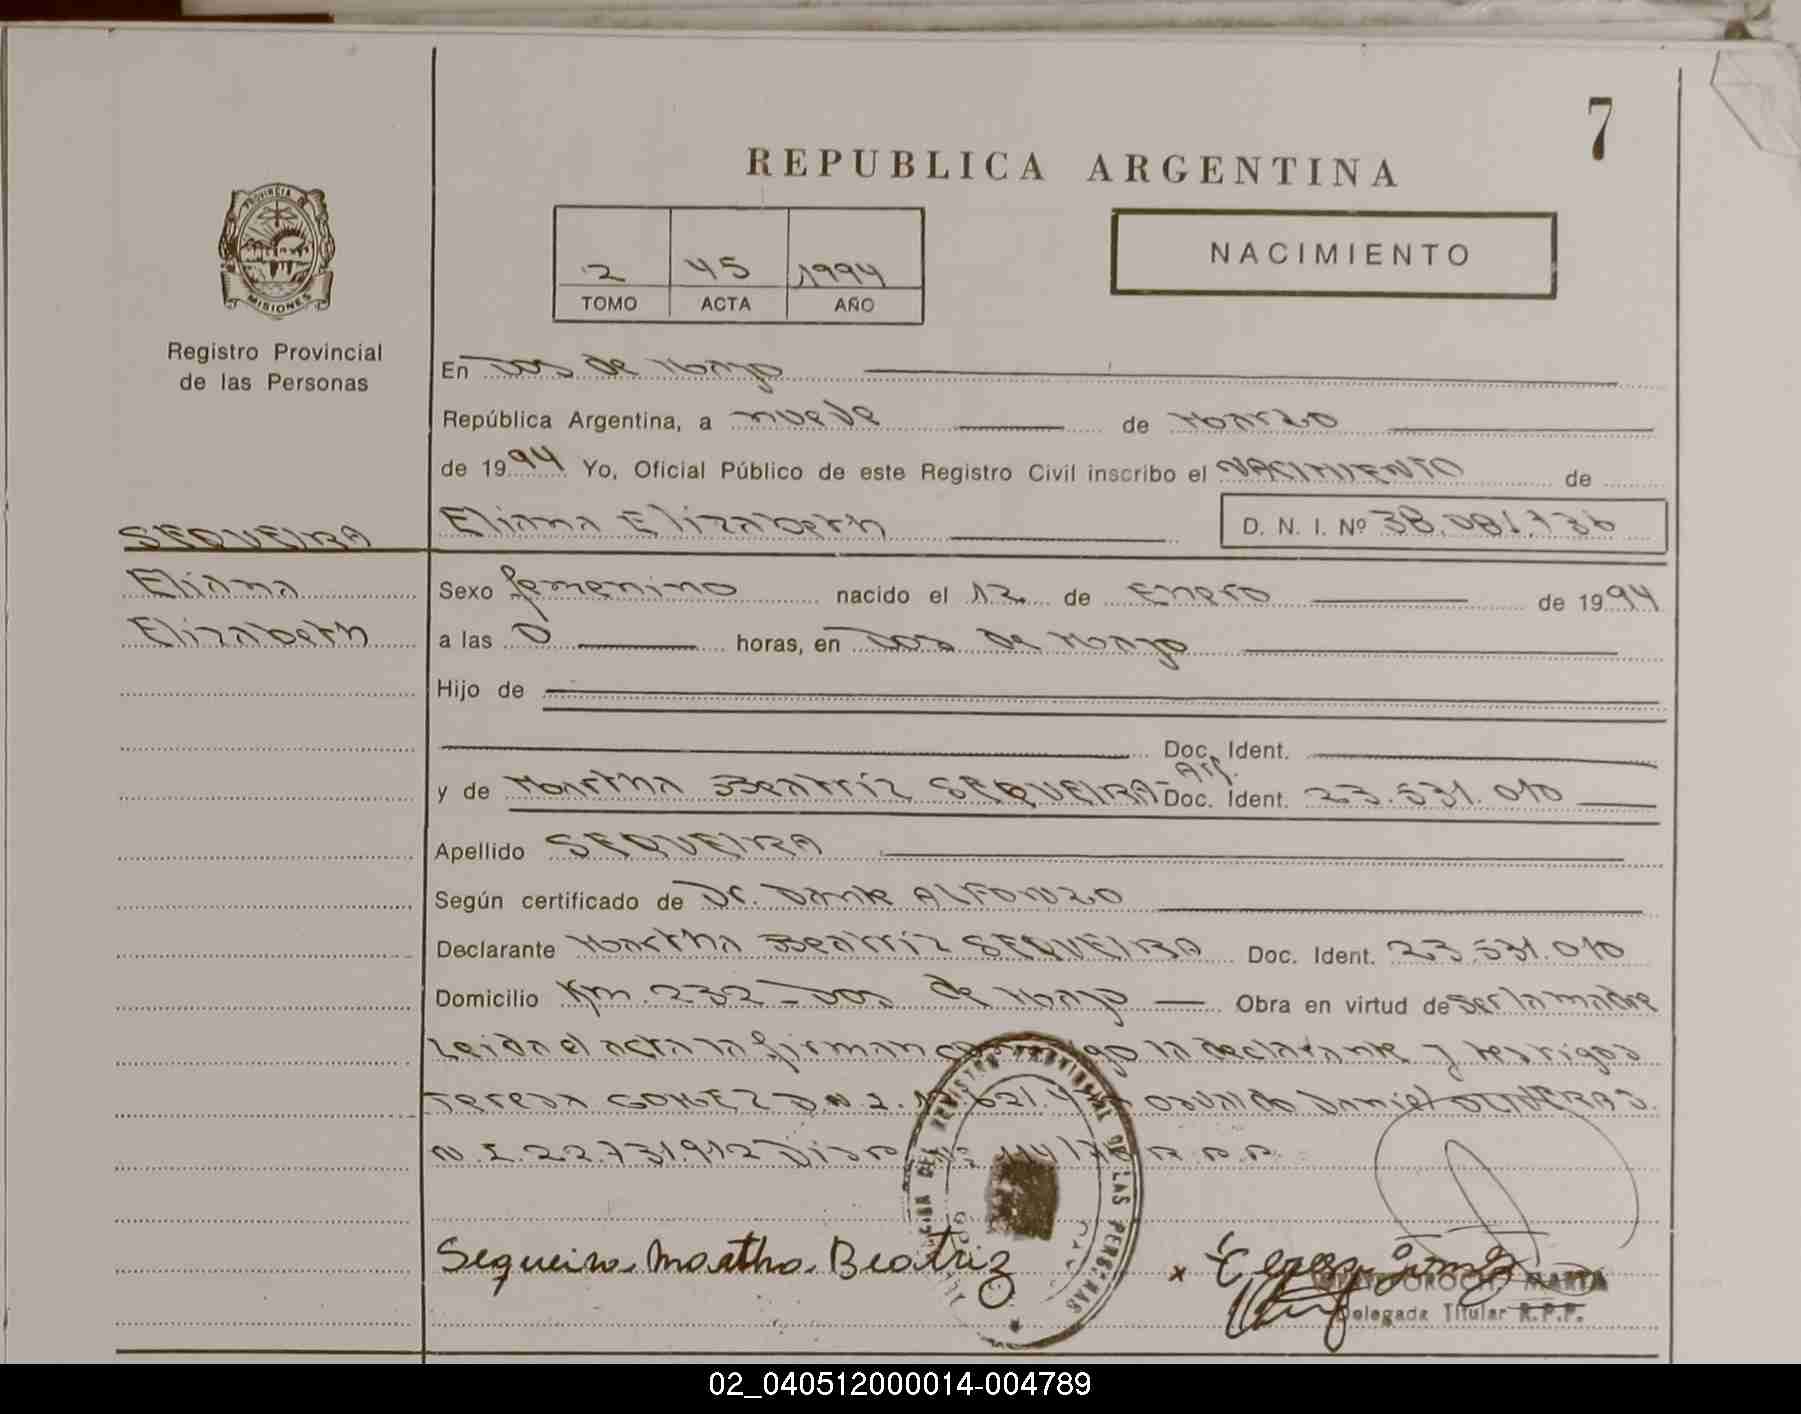 7
REPUBLICA ARGENTINA
PROVINCIA DE
MISIONES
Registro Provincial
de las Personas
2 45 1994
TOMO ACTA AÑO
NACIMIENTO
En Dos de Mayo
República Argentina, a nueve de Marzo
de 1994 Yo, Oficial Público de este Registro Civil inscribo el NACIMIENTO de
SEQUEIRA
Eliana Elizabeth D. N. I. Nº 38.081.736
Eliana
Elizabeth
Sexo femenino nacido el 12 de Enero de 1994
a las 0 horas, en Dos de Mayo
Hijo de
Doc. Ident.
Arg.
y de Martha Beatríz SEQUEIRA- Doc. Ident. 23.531.010
Apellido SEQUEIRA
Según certificado de Dr. Dante ALFONZO
Declarante Martha Beatríz SEQUEIRA Doc. Ident. 23.531.010
Domicilio Km. 232 - Dos de Mayo Obra en virtud de ser la madre
Leida el acta la firman conmigo la declarante y testigos
Teresa GOMEZ D.N.I. Osvaldo Daniel D.
N.I. 22.731912 R.P.P.
REGISTRO PROVINCIAL DE LAS PERSONAS
Sequeira Martha Beatriz x Teresa Gomez
MARTA
Delegada Titular R.P.P.
02_040512000014-004789